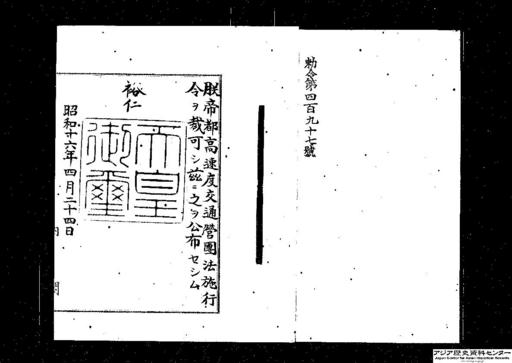 勅令第四百九十七號
朕帝都高速度交通營團法施行
令ヲ裁可シ茲ニ之ヲ公布セシム
裕仁
天皇
御璽
昭和十六年四月二十四日
アジア歴史資料センター
Japan Center for Asian Historical Records